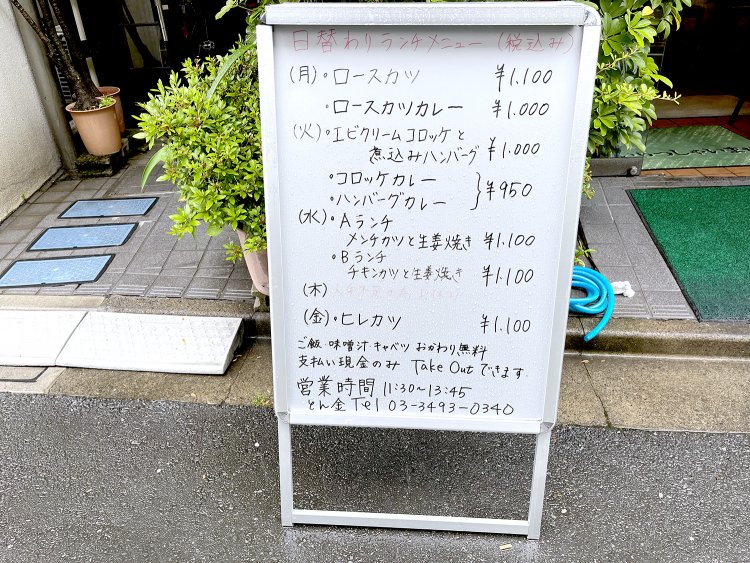 日替わりランチメニュー (税込み)
(月)・ロースカツ ¥1.100
・ロースカツカレー ¥1.000
(火)・エビクリームコロッケと
煮込みハンバーグ ¥1.000
・コロッケカレー
・ハンバーグカレー } ¥950
(水)・Aランチ
メンチカツと生姜焼き ¥1.100
・Bランチ
チキンカツと生姜焼き ¥1.100
(木)
(金)・ヒレカツ ¥1.100
ご飯・味噌汁・キャベツ おかわり無料
支払い現金のみ Take Out できます
営業時間 11:30~13:45
とん金 Tel 03-3493-0340